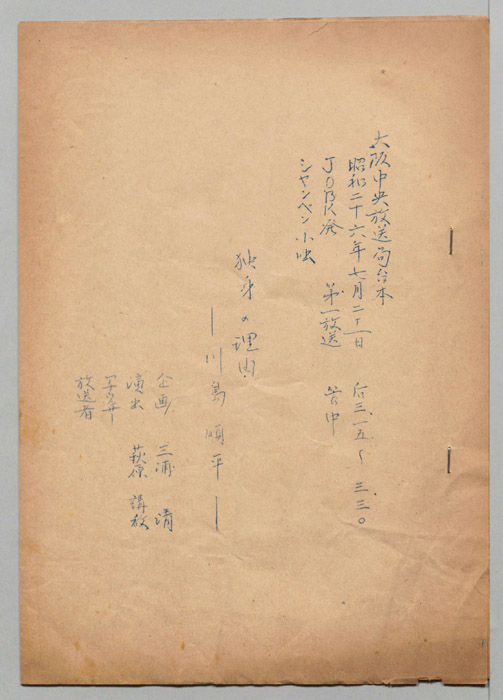 大阪中央放送局台本
昭和二十六年七月二十一日 后三.一五〜三.三〇
JOBK発 第一放送 管中
シャンペン小咄
独身の理由
—川島順平—
企画 三浦清
演出 萩原
放送者